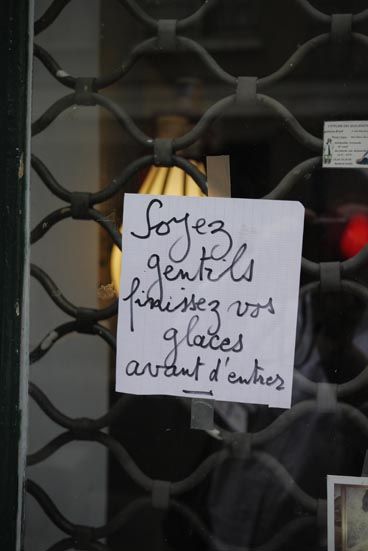 Soyez
gentils
finissez vos
glaces
avant d'entrer